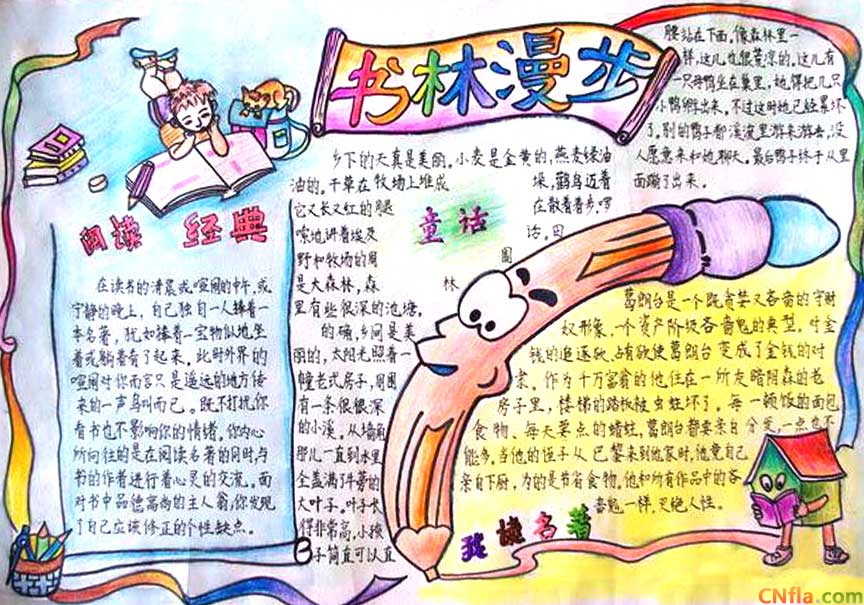 书林漫步
阅读 经典
在读书的清晨或喧闹的中午,或
宁静的晚上,自己独自一人捧着一
本名著,犹如捧着一宝物似地坐
着或躺着看了起来。此时外界的
喧闹对你而言只是遥远的地方传
来的一声鸟叫而已。既不打扰你
看书也不影响你的情绪。你内心
所向往的是在阅读名著的同时,与
书的作者进行着心灵的交流。面
对书中品德高尚的主人翁,你发现
了自己应该修正的个性缺点。
童话
乡下的天真是美丽。小麦是金黄的,燕麦绿油
油的。干草在牧场上堆成 垛,鹳鸟迈着
它又长又红的腿 在散着着步,啰
嗦地讲着埃及 话。田
野和牧场的周 围
是大森林,森 林
里有些很深的池塘。
的确,乡间是美
丽的,太阳光照着一
幢老式房子,周围
有一条很很深
的小溪。从墙角
那儿一直到水里
全盖满了牛蒡的
大叶子。叶子长
得非常高,小孩
子简直可以直
腰站在下面,像森林里一
样,这儿也很荒凉的。这儿有
一只母鸭坐在巢里,她得把几只
小鸭孵出来。不过这时她已经累坏
了,别的鸭子都溪流里游来游去,没
人愿意来和她聊天。最后鸭子终于从里
面蹦了出来。
葛朗台是一个既贪婪又吝啬的守财
奴形象,一个资产阶级吝啬鬼的典型。对金
钱的追逐欲、占有欲使葛朗台变成了金钱的对
象。作为十万富翁的他,住在一所灰暗阴森的老
房子里,楼梯的踏板被虫蛀坏了。每一顿饭的面包
食物、每天要点的蜡蛀,葛朗台都要亲自分发,一点也不
能多。当他的侄子从巴黎来到他家时,他竟自己
亲自下厨,为的是节省食物,他和所有作品中的吝
啬鬼一样,灭绝人性。
我读名著
CNfla.com